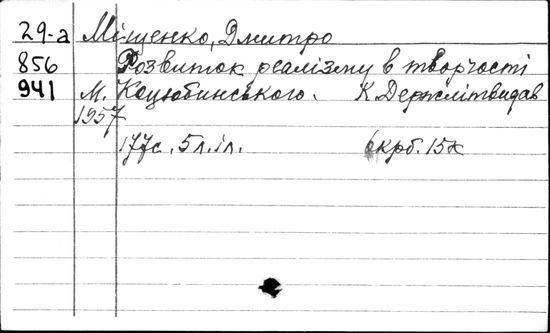 29-а Міщенко, Дмитро
856 Розвиток реалізму в творчості
941 М. Коцюбинського. К Держлітвидав
1957
177с., 5 л. іл. 6крб. 15к